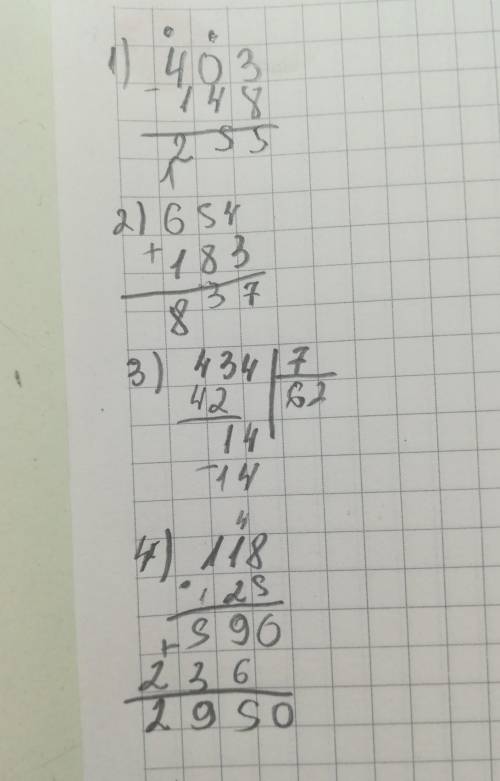 1) 403
- 148
255
1
2) 654
+ 183
837
3) 434 7
42 62
14
- 14
4
4) 118
· 25
590
+
236
2950